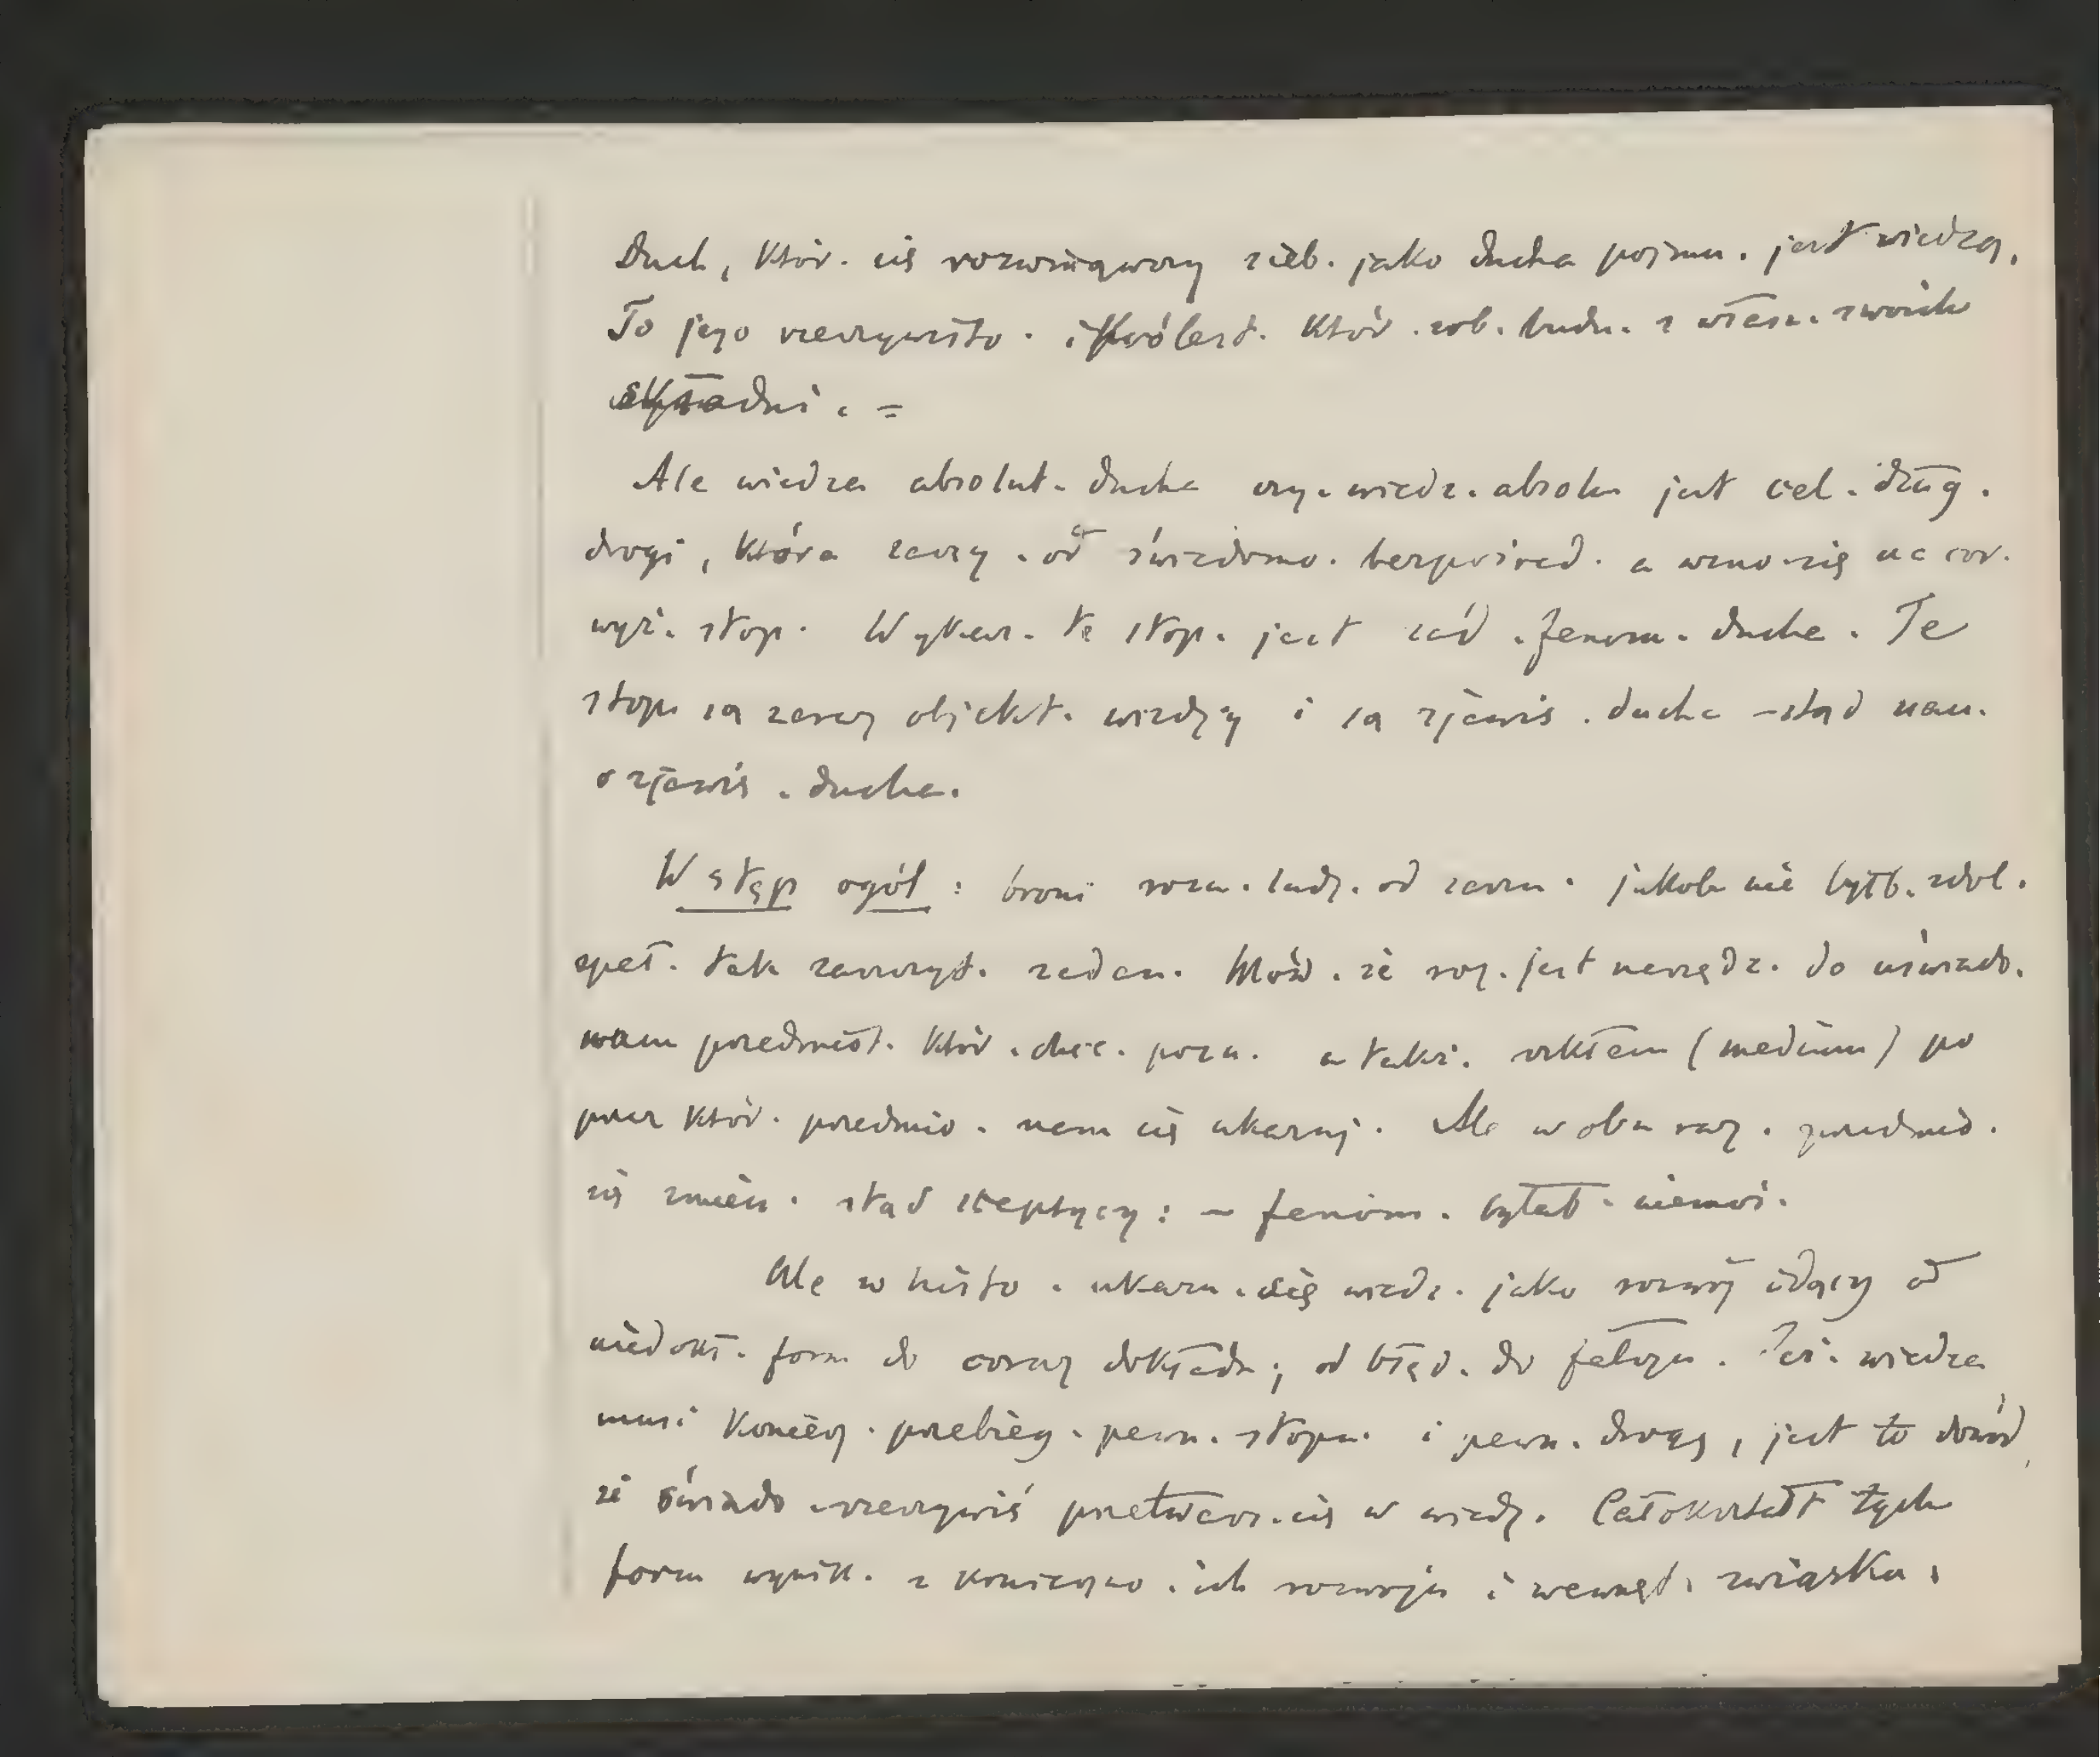 Duch, któr. się rozwinąwszy sieb. jako ducha pojmu. jest wiedzą.
To jego rzeczywisto. i królest. któr. sob. budu. z własn. swoich
składni. =
Ale wiedza absolut. ducha czy. wiedz. absolu jest cel. dług.
drogi, która zaczy. od świadomo. bezpośred. a wzno. się na cor.
wyż. stop. Wykaz. te stop. jest zad. fenom. ducha. Te
stopn są zaraz objekt. wiedzy i są zjawis. ducha – stąd nau.
o zjawis. ducha.
Wstęp ogól: broni rozu. ludz. od zarzu. jakob nie byłb. zdol.
speł. tak zaszczyt. zadan. Mów. że roz. jest narzędz. do uświado.
wam przedmiot. któr. chce. pozn. a takż. szkłem (medium) po
przez któr. przedmio. nam się ukazuj. Ale w obu raz. przedmio.
się zmien. stąd sceptycy: – fenom. byłab. niemoż.
Ale w histo. ukazu. się wiedz. jako rozwój idący od
niedokł. form do coraz dokładn; od błęd. do fałszu. Jeś. wiedza
musi koniecz. przebieg. pewn. stopn. i pewn. drogę, jest to dowód,
że świado. rzeczywiś przetwarz. się w wiedz. Całokształt tych
form wynik. z konieczno. ich rozwoju i wewnęt. związku.